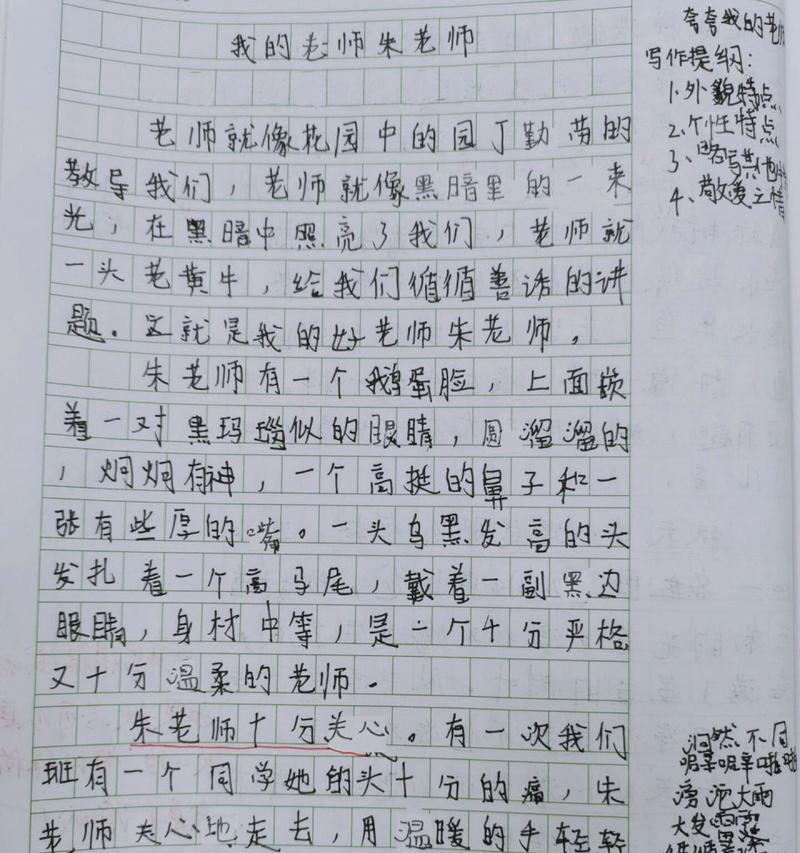 我的老师朱老师
老师就像花园中的园丁勤劳的
教导我们，老师就像黑暗里的一束
光，在黑暗中照亮了我们，老师就
一头老黄牛，给我们循循善诱的讲
题。这就是我的好老师朱老师。
朱老师有一个鹅蛋脸，上面嵌
着一对黑玛瑙似的眼睛，圆溜溜的
，炯炯有神，一个高挺的鼻子和一
张有些厚的嘴。一头乌黑发高的头
发扎着一个高马尾，戴着一副黑边
眼睛，身材中等，是一个十分严格
又十分温柔的老师。
朱老师十分关心。有一次我们
班有一个同学她的头十分的痛，朱
老师关心地走去，用温暖的手轻轻
夸夸我的老师
写作提纲：
1.外貌特点
2.个性特点
3、略写其他
4、敬爱之情
迥然不同
滂沱大雨
大发雷霆